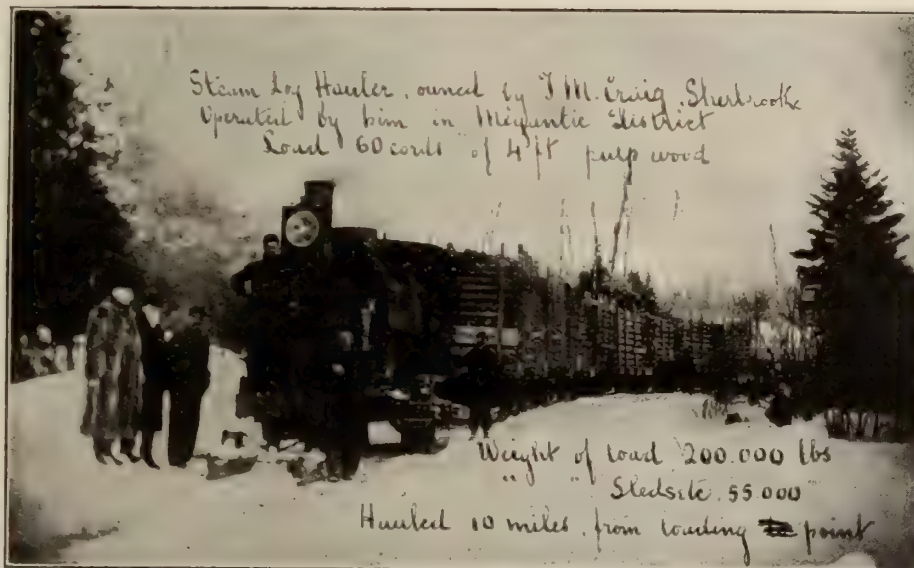 Steam Log Hauler. owned by J M. Craig. Sherbrooke
Operated by him in Megantic District
Load 60 cords of 4 ft pulp wood
Weight of load 200.000 lbs
" " Sleds etc. 55.000 "
Hauled 10 miles. from loading point